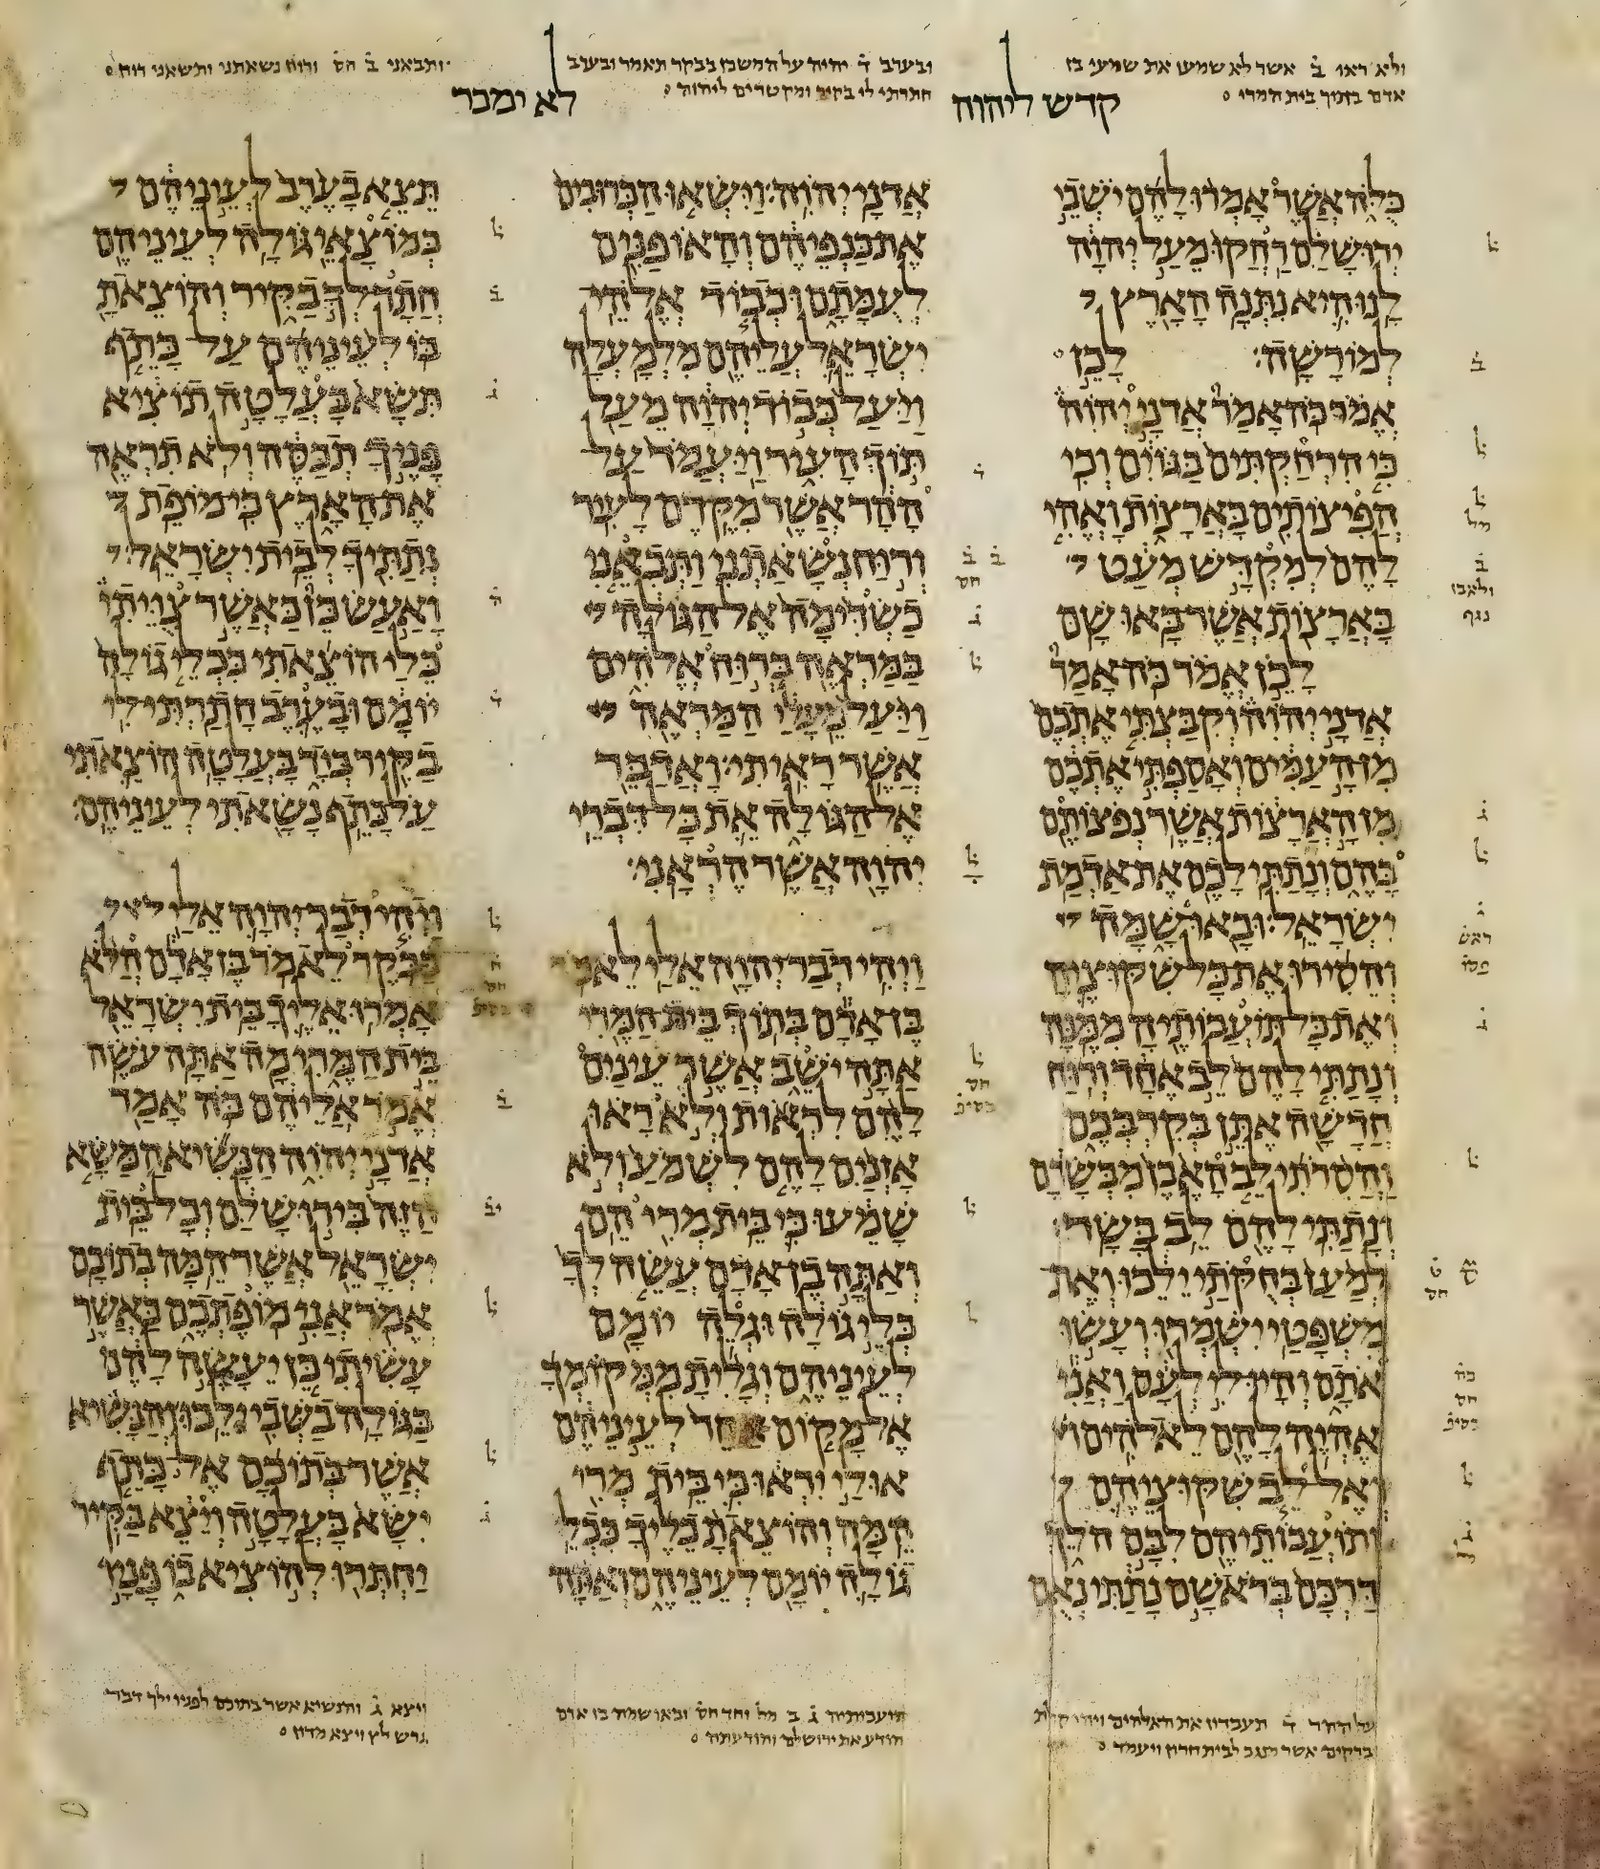 ולא ראו ב אשר לא שמעו את שמעי בן
אדם בתוך בית המרי
ובערב ד יהיה על המשכן בבקר תאמר ובערב
חתרתי לי בקיר ומקטרים ליהוה
ותבאני ב חס ורוח נשאתני ותשאני רוח
קדש ליהוה
לא ימכר
כלה אשר אמרו להם ישבי
ירושלם רחקו מעל יהוה
לנו היא נתנה הארץ
למורשה׃ לכן
אמר כה אמר אדני יהוה
כי הרחקתים בגוים וכי
הפיצותים בארצות ואהי
להם למקדש מעט
בארצות אשר באו שם׃
לכן אמר כה אמר
אדני יהוה וקבצתי אתכם
מן העמים ואספתי אתכם
מן הארצות אשר נפצותם
בהם ונתתי לכם את אדמת
ישראל׃ ובאו שמה
והסירו את כל שקוציה
ואת כל תועבותיה ממנה׃
ונתתי להם לב אחד ורוח
חדשה אתן בקרבכם
והסרתי לב האבן מבשרם
ונתתי להם לב בשר׃
למען בחקתי ילכו ואת
משפטי ישמרו ועשו
אתם והיו לי לעם ואני
אהיה להם לאלהים׃
ואל לב שקוציהם
ותועבותיהם לבם הלך
דרכם בראשם נתתי נאם
אדני יהוה׃ וישאו הכרובים
את כנפיהם והאופנים
לעמתם וכבוד אלהי
ישראל עליהם מלמעלה׃
ויעל כבוד יהוה מעל
תוך העיר ויעמד על
ההר אשר מקדם לעיר׃
ורוח נשאתני ותבאני
כשדימה אל הגולה
במראה ברוח אלהים
ויעל מעלי המראה
אשר ראיתי׃ ואדבר
אל הגולה את כל דברי
יהוה אשר הראני׃
ויהי דבר יהוה אלי לאמר׃
בן אדם בתוך בית המרי
אתה ישב אשר עינים
להם לראות ולא ראו
אזנים להם לשמע ולא
שמעו כי בית מרי הם׃
ואתה בן אדם עשה לך
כלי גולה וגלה יומם
לעיניהם וגלית ממקומך
אל מקום אחר לעיניהם
אולי יראו כי בית מרי
המה׃ והוצאת כליך ככלי
גולה יומם לעיניהם ואתה
תצא בערב לעיניהם
כמוצאי גולה׃ לעיניהם
חתר לך בקיר והוצאת
בו׃ לעיניהם על כתף
תשא בעלטה תוציא
פניך תכסה ולא תראה
את הארץ כי מופת
נתתיך לבית ישראל׃
ואעש כן כאשר צויתי
כלי הוצאתי ככלי גולה
יומם ובערב חתרתי לי
בקיר ביד בעלטה הוצאתי
על כתף נשאתי לעיניהם׃
ויהי דבר יהוה אלי
בבקר לאמר׃ בן אדם הלא
אמרו אליך בית ישראל
בית המרי מה אתה עשה׃
אמר אליהם כה אמר
אדני יהוה הנשיא המשא
הזה בירושלם וכל בית
ישראל אשר המה בתוכם׃
אמר אני מופתכם כאשר
עשיתי כן יעשה להם
בגולה בשבי ילכו׃ והנשיא
אשר בתוכם אל כתף
ישא בעלטה ויצא בקיר
יחתרו להוציא בו פניו
על ההר ד תעבדון את האלהים ויהי
ברקים אשר מנגב לבית חרון ויעמד
תועבותיה ג ב מל וחד חס ובאו שמה בן אדם
הודע את ירושלם והודעתה
ויצא ג והנשיא אשר בתוכם לפניו ילך דבר
גרש לץ ויצא מדון